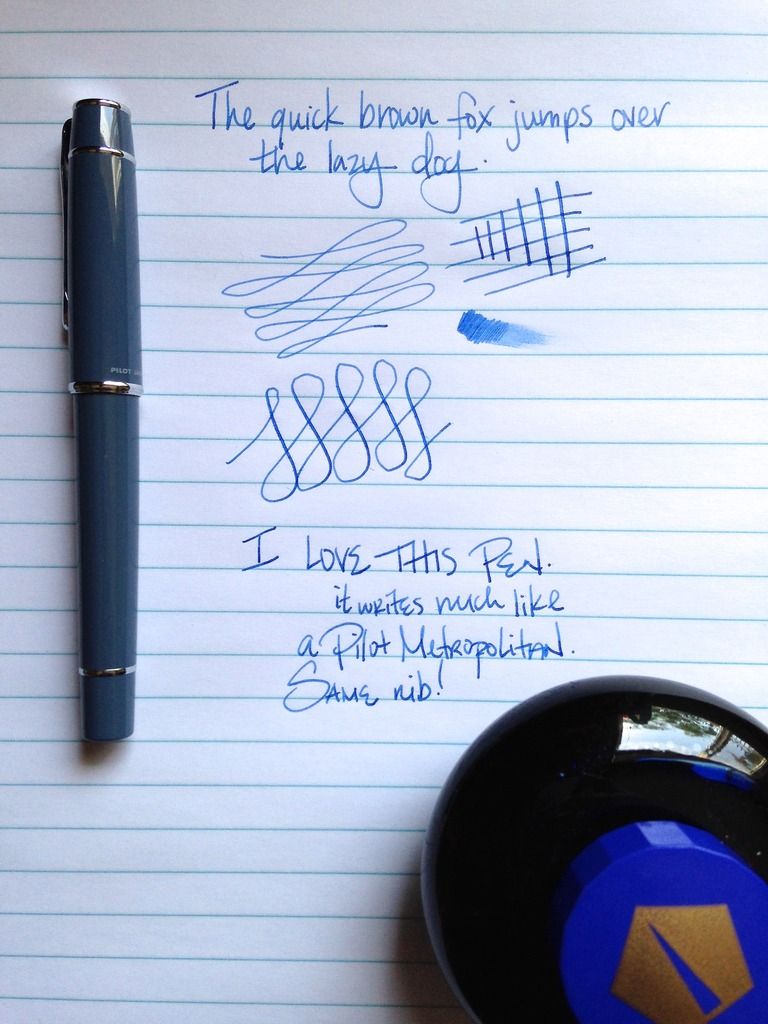 The quick brown fox jumps over
the lazy dog.
PILOT
I LOVE THIS PEN.
it writes much like
a Pilot Metropolitan.
Same nib!